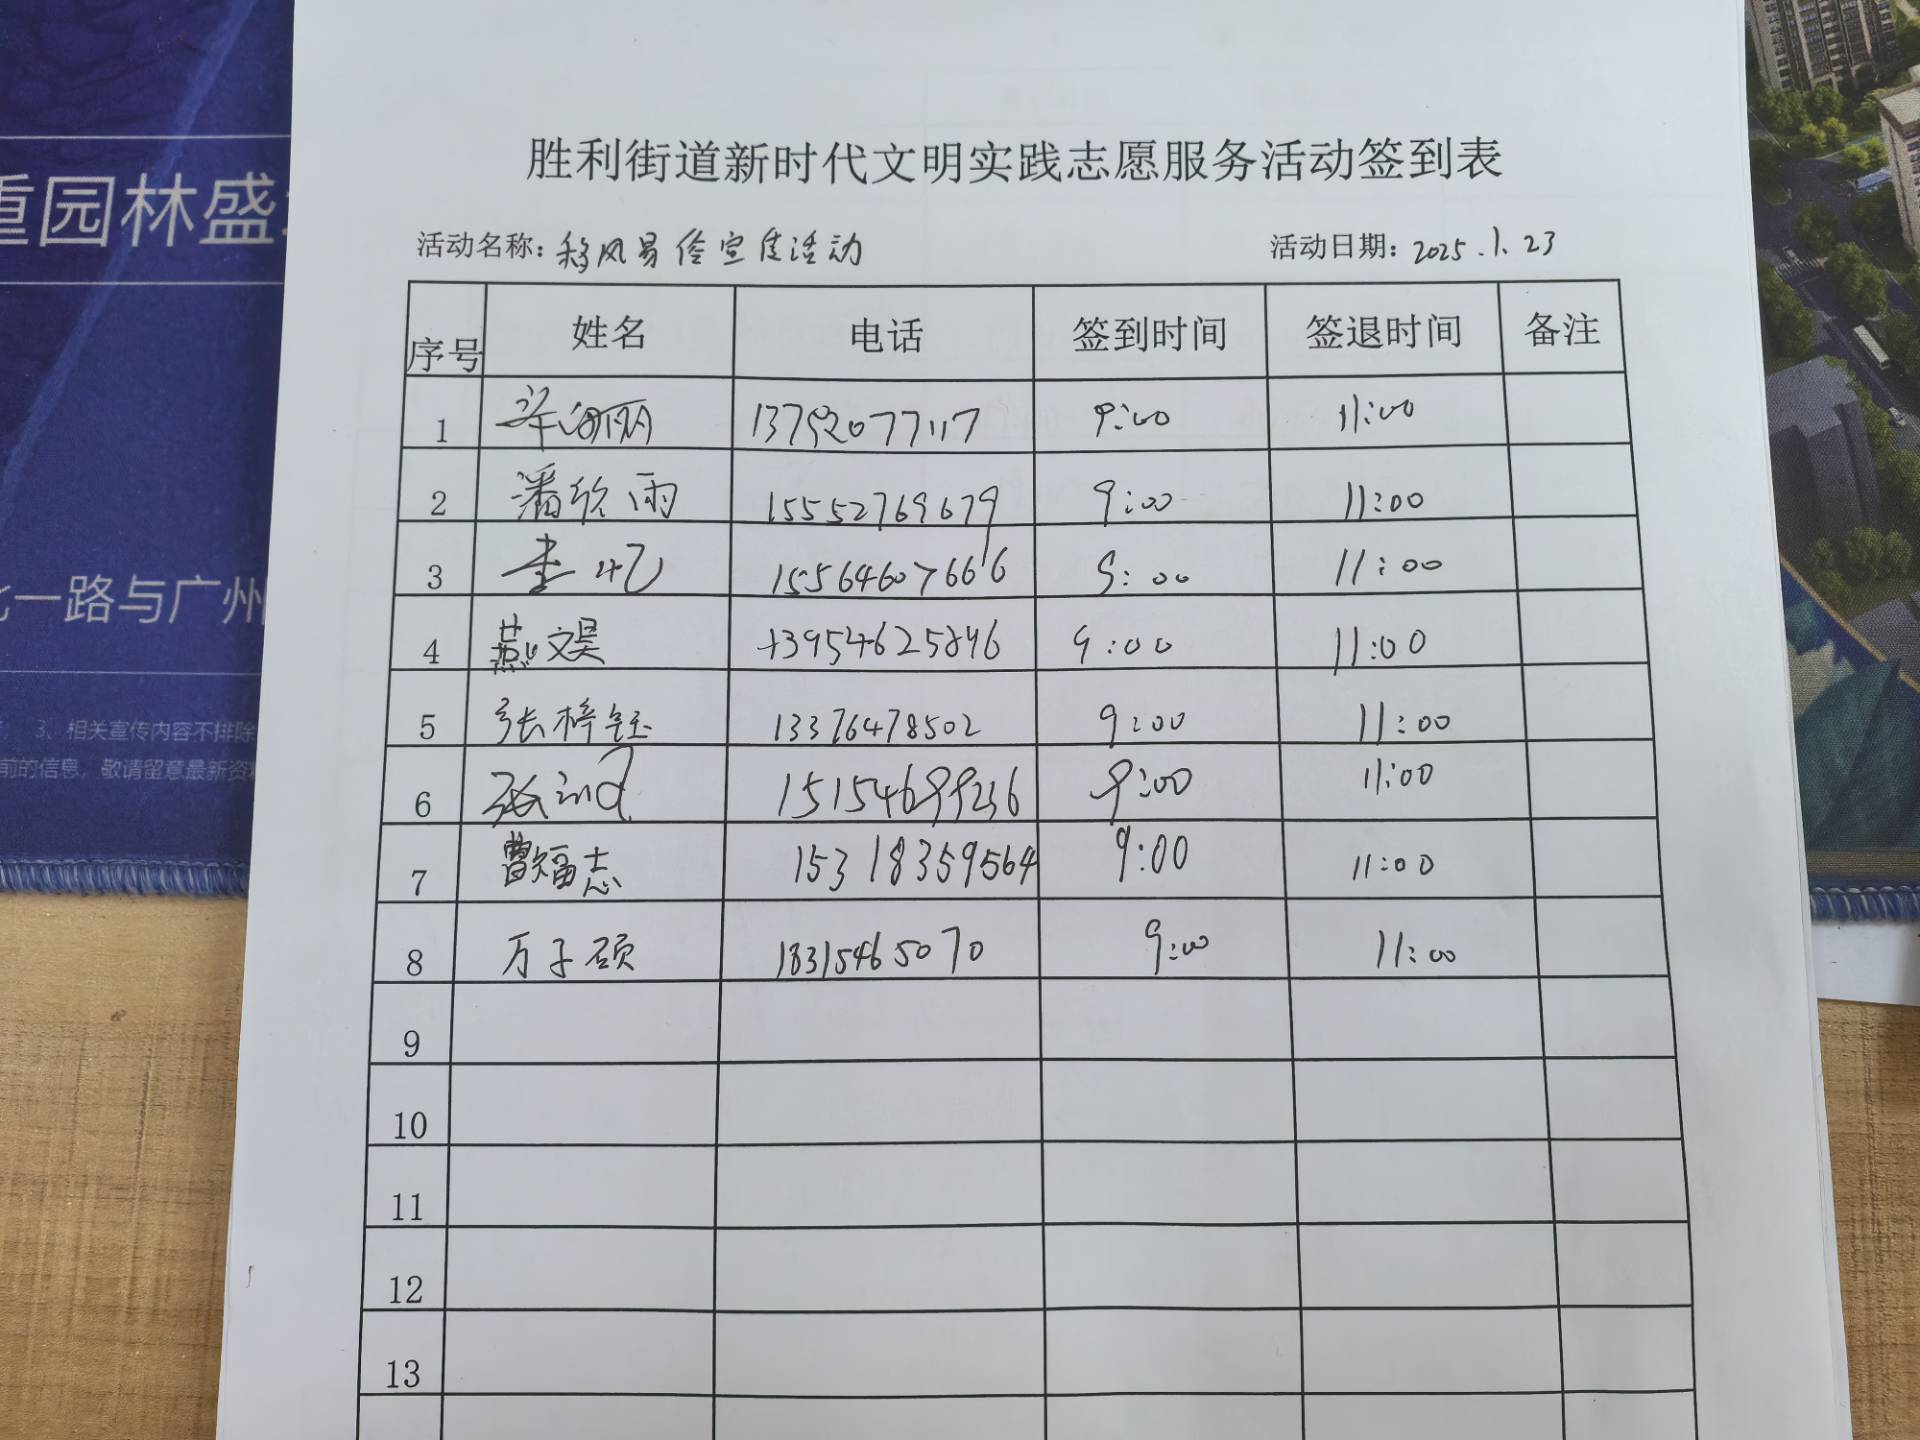 重园林盛
一路与广州
3、相关宣传内容不排除
前的信息，敬请留意最新资
胜利街道新时代文明实践志愿服务活动签到表
活动名称：移风易俗宣传活动 活动日期：2025.1.23
序号 姓名 电话 签到时间 签退时间 备注
1 13792077117 9:00 11:00
2 潘欣雨 15552769679 9:00 11:00
3 李 15564607666 9:00 11:00
4 燕文昊 13954625846 9:00 11:00
5 张梓钰 13376478502 9:00 11:00
6 张 9:00 11:00
7 曹福志 15318359564 9:00 11:00
8 万子硕 18315465070 9:00 11:00
9
10
11
12
13